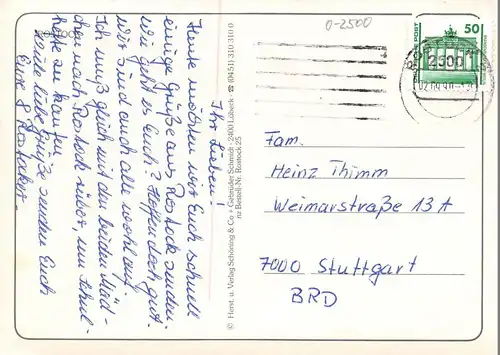 0-2500
POST
50
2500
02.09.90
Ihr Lieben!
Heute möchten wir Euch schnell
einige Grüße aus Rostock senden.
Wie geht es Euch? Hoffen doch gut.
Wir sind auch alle wohl auf.
Ich muß gleich mit den beiden Mäd-
chen nach Rostock rüber um Schul-
hefte zu kaufen.
Viele liebe Grüße senden Euch
Eure 8 Rostocker.
© Herst. u. Verlag Schöning & Co + Gebrüder Schmidt · 2400 Lübeck · ☎ (0451) 310 310 0
nr Bestell-Nr. Rostock 25
Fam.
Heinz Thimm
Weimarstraße 13 A
7000 Stuttgart
BRD